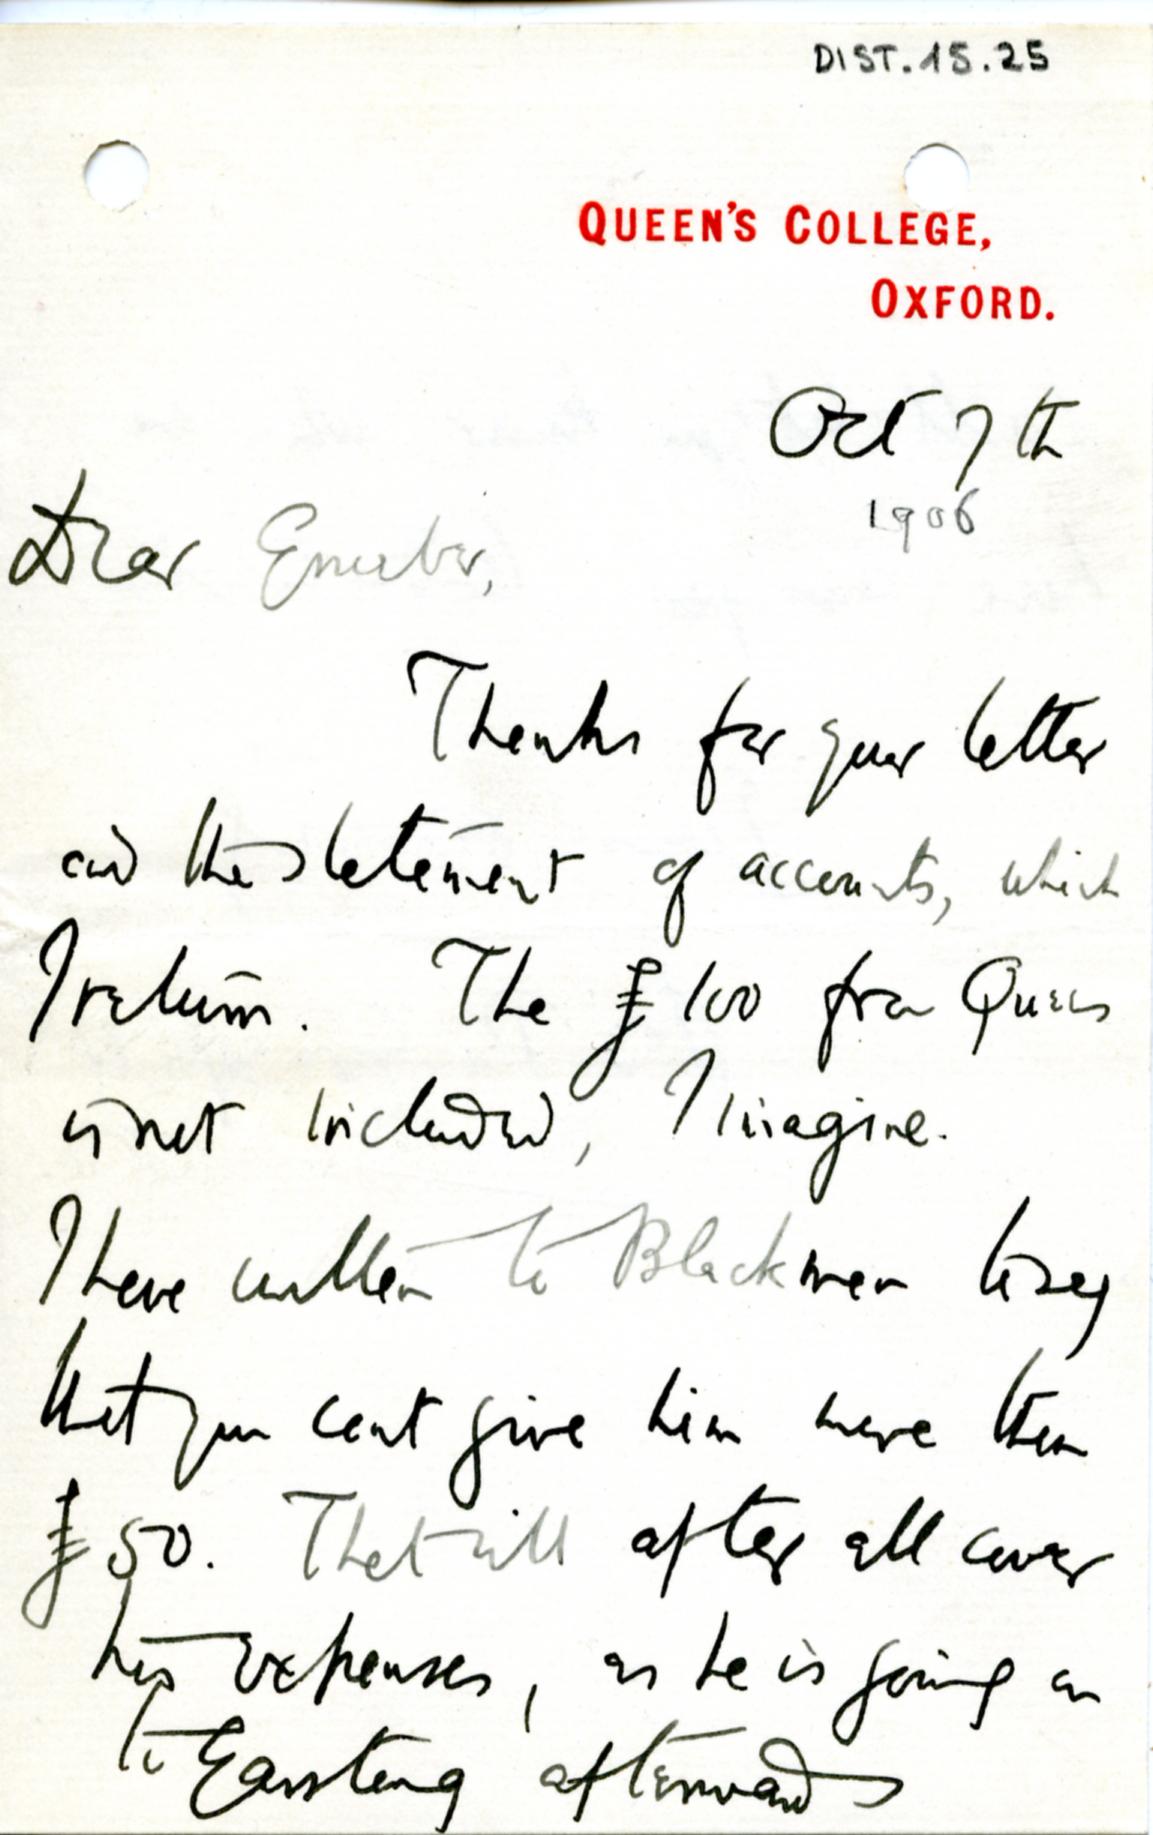 DIST.15.25
QUEEN'S COLLEGE,
OXFORD.
Oct 7th
1906
Dear Grueber,
Thanks for your letter
and the statement of accounts, which
I return. The £100 from Queens
is not included, I imagine.
I have written to Blackman to say
that you cant give him more than
£50. That will after all cover
his expenses, as he is going on
to Garstang afterwards